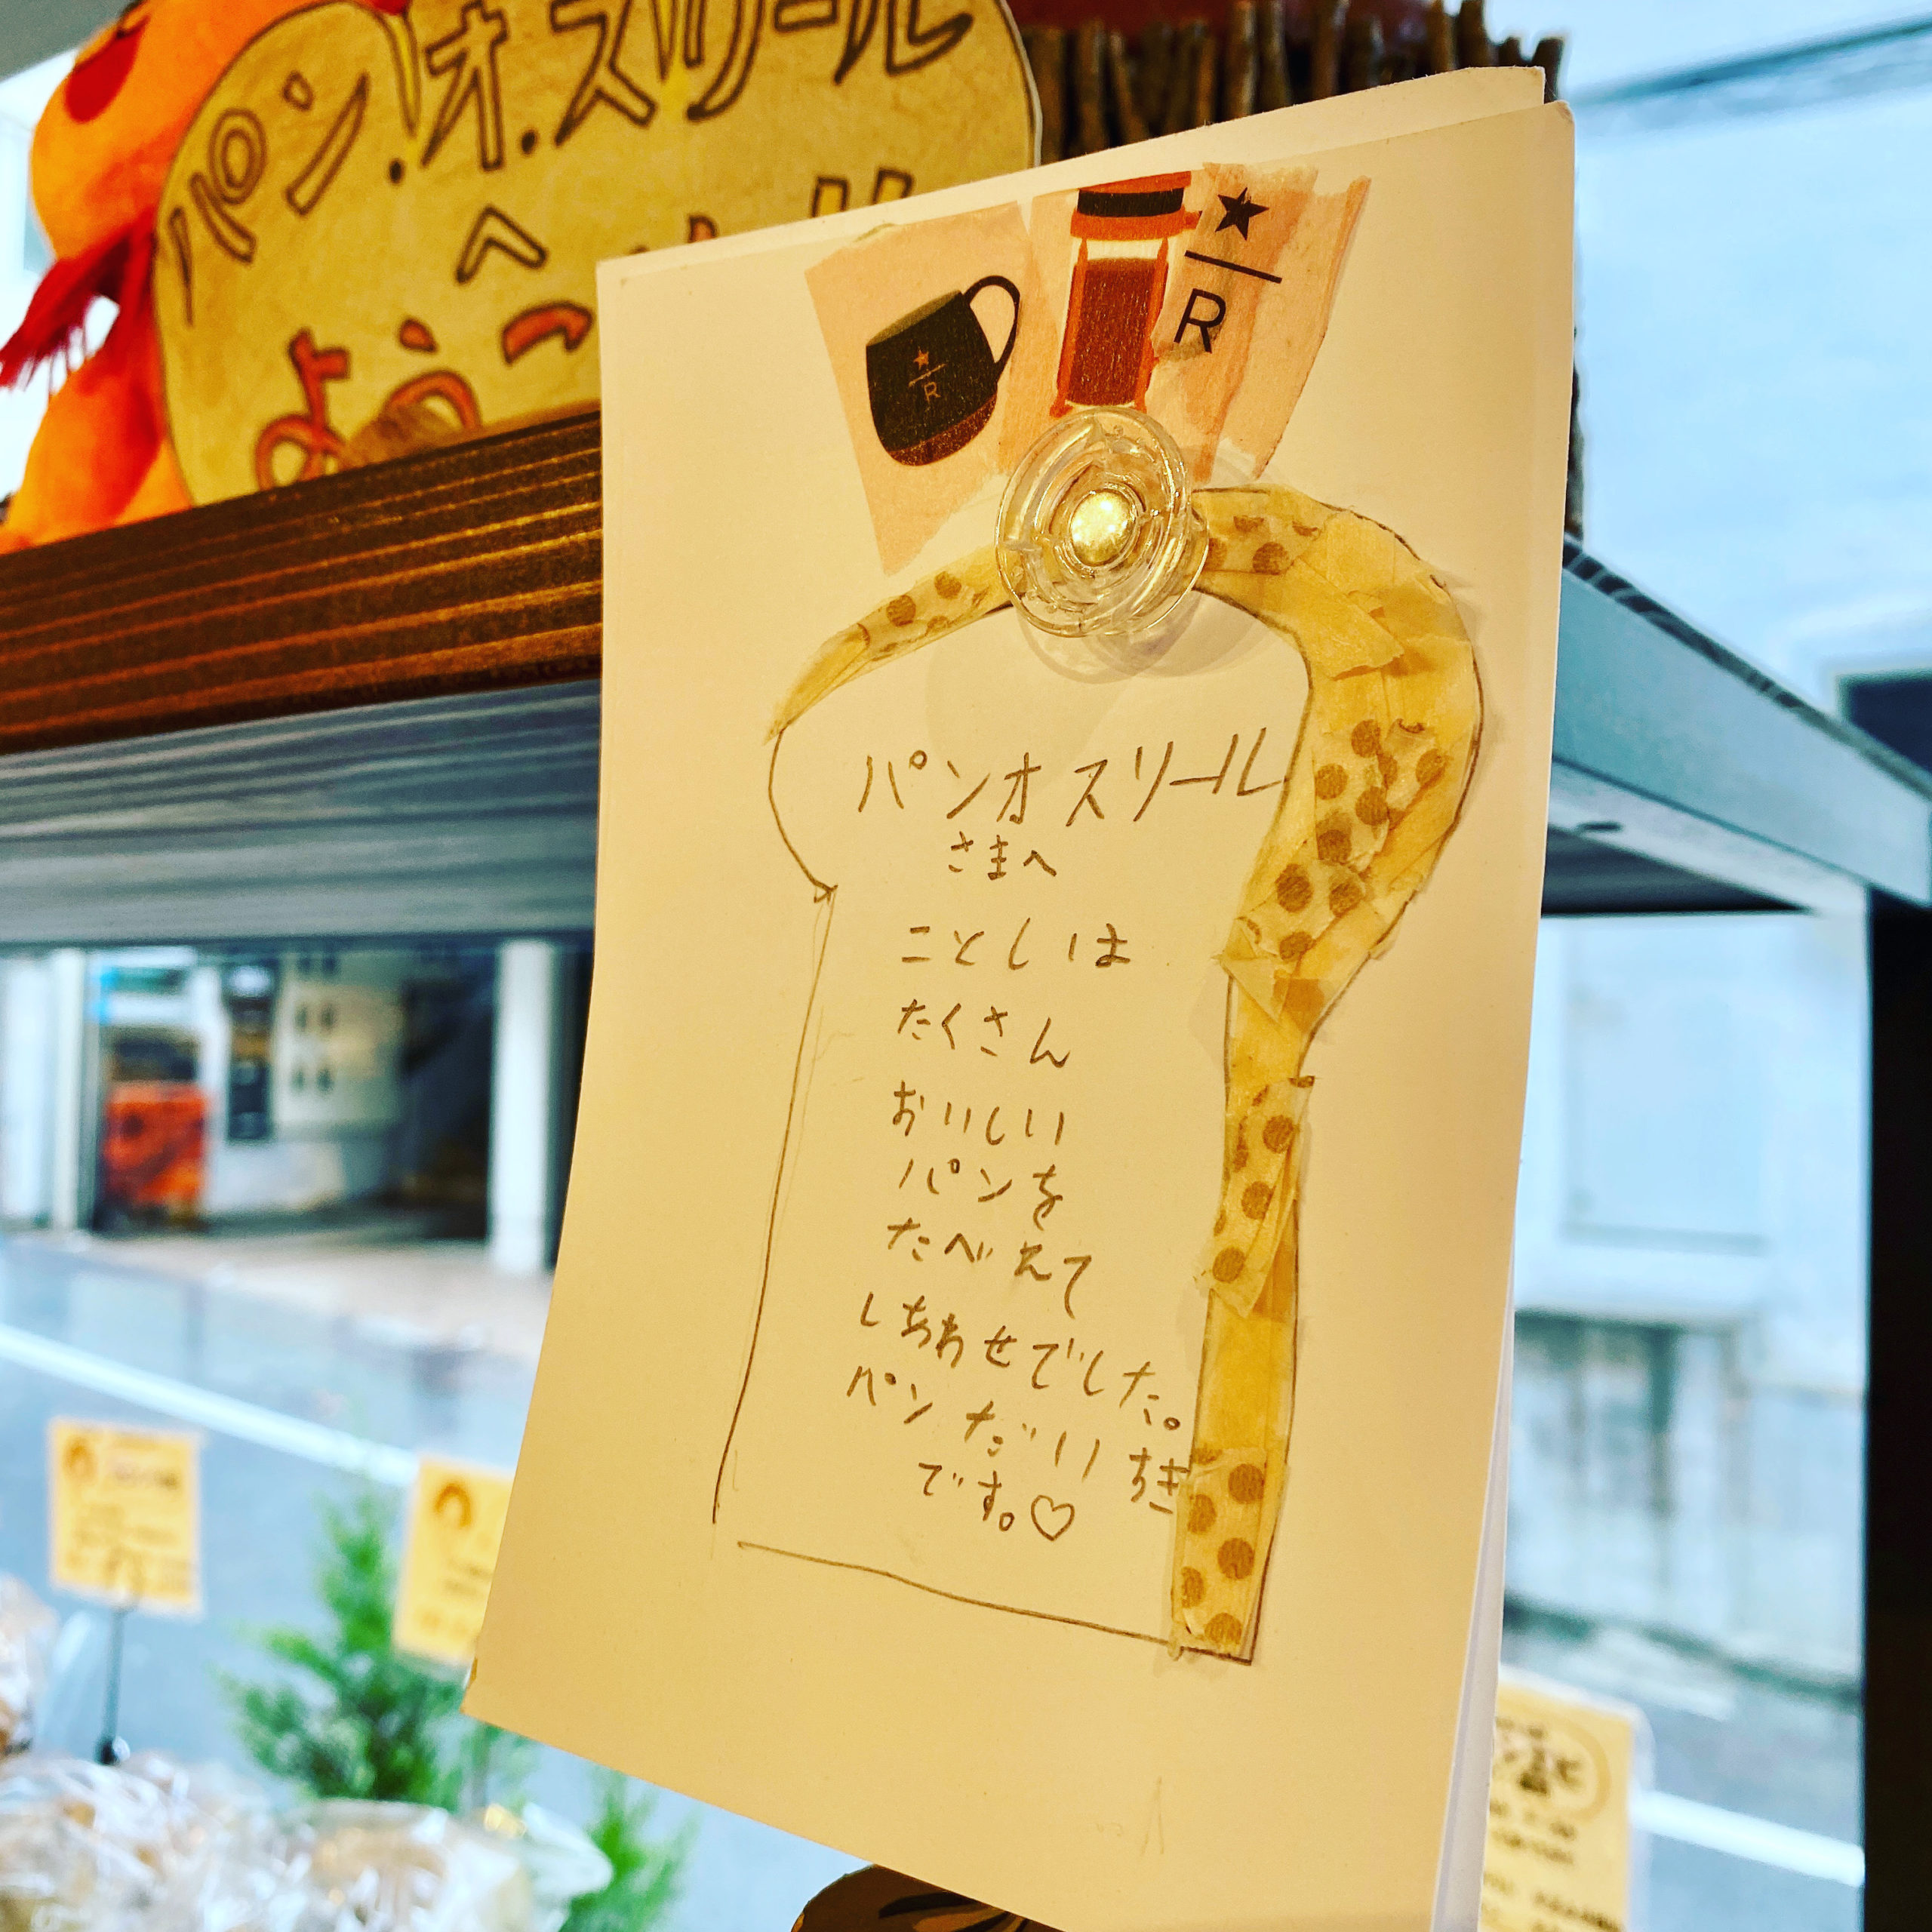 パン.オ.スリール
へ
ようこ
★
R
★
R
パンオスリール
さまへ
ことしは
たくさん
おいしい
パンを
たべえて
しあわせでした。
パンだいすき
です。♡